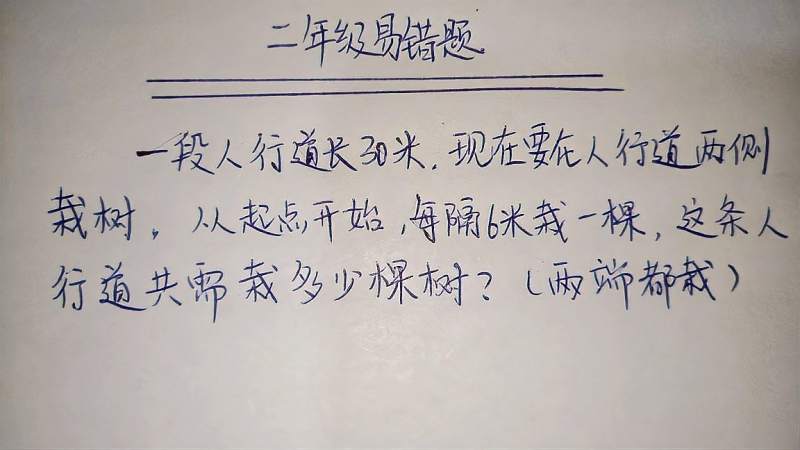 二年级易错题
一段人行道长30米,现在要在人行道两侧
栽树。从起点开始,每隔6米栽一棵,这条人
行道共需栽多少棵树?(两端都栽)